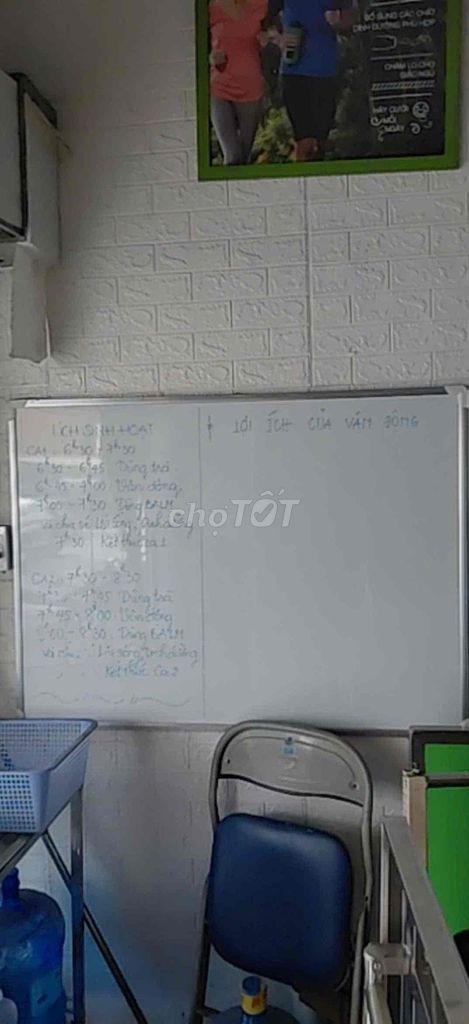 BỔ SUNG CÁC CHẤT
DINH DƯỠNG PHÙ HỢP
CHĂM LO CHO
GIẤC NGỦ
HÃY CƯỜI
MỖI
NGÀY
LỊCH SINH HOẠT
CA1 = 6h30 - 7h30
6h30 - 6h45 Dùng trà
6h45 - 7h00 Vận động
7h00 - 7h30 Dùng BALM
và chia sẻ Lối sống
7h30 Kết thúc ca 1
CA2 = 7h30 - 8h30
7h45 Dùng trà
7h45 - 8h00 Vận động
8h30 Dùng BALM
và chia Lối sống dinh dưỡng
Kết thúc Ca 2
LỢI ÍCH CỦA VẬN ĐỘNG
chợTỐT